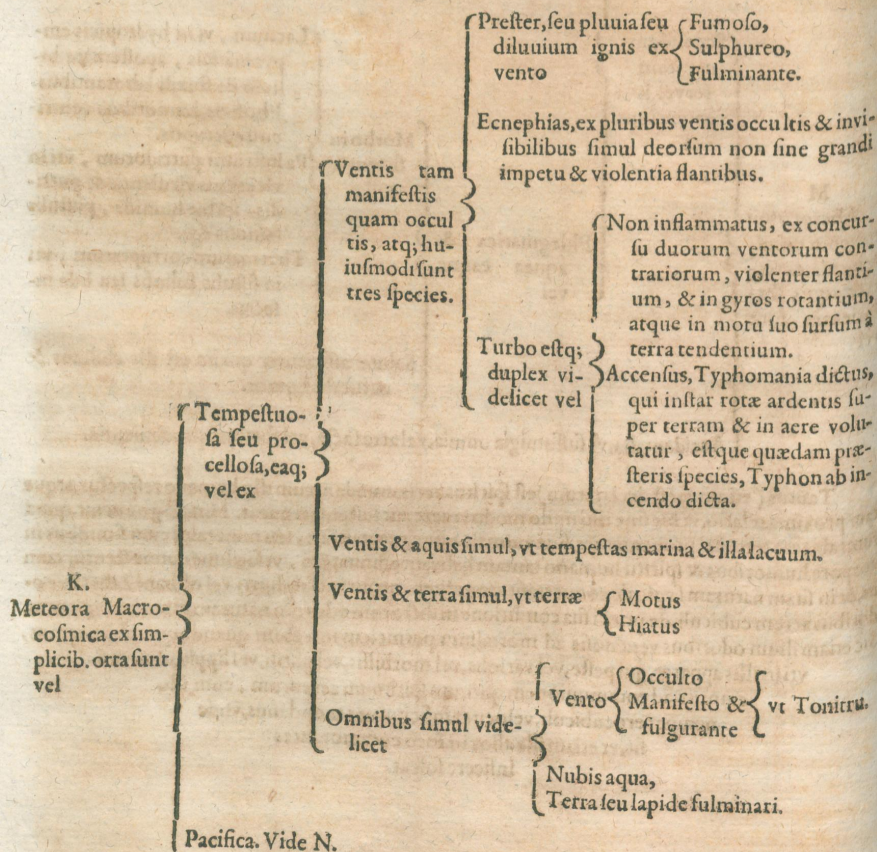 K.
Meteora Macro-
coſmica ex ſim-
plicib. orta ſunt
vel
Tempeſtuo-
ſa ſeu pro-
celloſa, eaq;
vel ex
Ventis tam
manifeſtis
quam occul
tis, atq; hu-
iuſmodi ſunt
tres ſpecies.
Preſter, ſeu pluuia ſeu
diluuium ignis ex
vento
Fumoſo,
Sulphureo,
Fulminante.
Ecnephias, ex pluribus ventis occultis & invi-
ſibilibus ſimul deorſum non ſine grandi
impetu & violentia flantibus.
Turbo eſtq;
duplex vi-
delicet vel
Non inflammatus, ex concur-
ſu duorum ventorum con-
trariorum, violenter flanti-
um, & in gyros rotantium,
atque in motu ſuo ſurſum à
terra tendentium.
Accenſus, Typhomania dictus,
qui inſtar rotæ ardentis ſu-
per terram & in aere volu-
tatur, eſtque quædam præ-
ſteris ſpecies, Typhon ab in-
cendo dicta.
Ventis & aquis ſimul, vt tempeſtas marina & illa lacuum.
Ventis & terra ſimul, vt terræ
Motus
Hiatus
Omnibus ſimul vide-
licet
Vento
Occulto
Manifeſto &
fulgurante
vt Tonitru.
Nubis aqua,
Terra ſeu lapide fulminari.
Pacifica. Vide N.